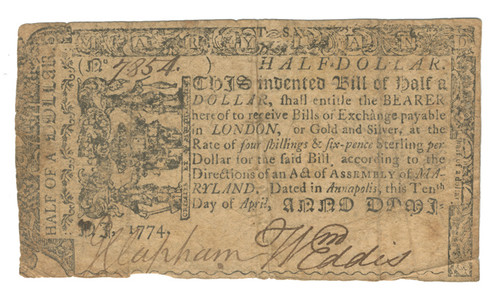 M A R Y L A N D
(No 7854. ) HALF-DOLLAR.
THIS indented Bill of Half a
DOLLAR, ſhall entitle the BEARER
hereof to receive Bills of Exchange payable
in LONDON, or Gold and Silver, at the
Rate of four ſhillings & ſix-pence Sterling per
Dollar for the ſaid Bill, according to the
Directions of an Act of ASSEMBLY of MA-
RYLAND, Dated in Annapolis, this Tenth
Day of April, ANNO DOMI-
NI, 1774.
HALF OF A DOLLAR
Clapham Wm Eddis